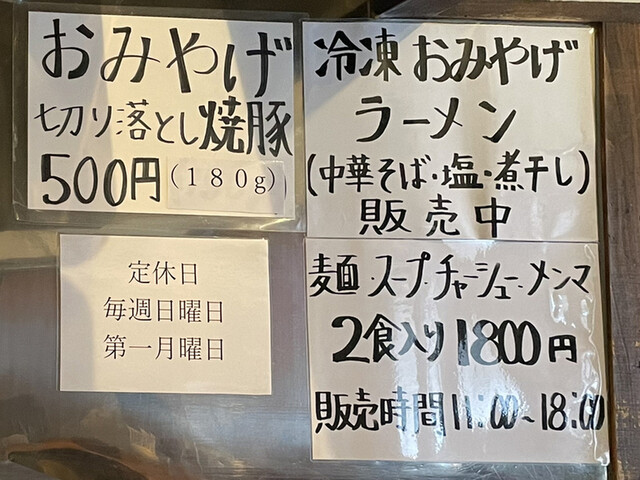 おみやげ
切り落とし焼豚
500円(180g)
冷凍おみやげ
ラーメン
(中華そば・塩・煮干し)
販売中
麺・スープ・チャーシュー・メンマ
2食入り1800円
販売時間11:00~18:00
定休日
毎週日曜日
第一月曜日